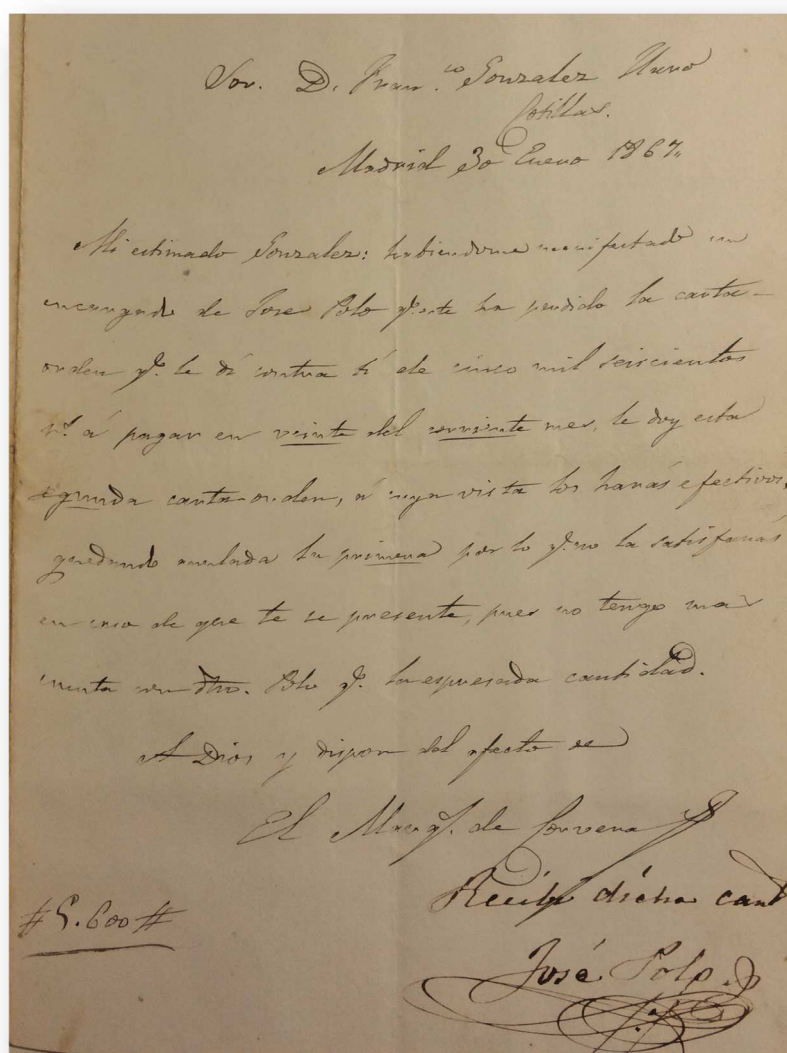 Sor. D. Fran.co Gonzalez
Cotillas.
Madrid 30 Enero 1867,,
Mi estimado Gonzalez: habiendome manifestado un
encargado de Jose Polo q.e este ha perdido la carta-
orden q.e le dí contra tí de cinco mil seiscientos
r.s á pagar en veinte del corriente mes, le doy esta
segunda carta-orden, á cuya vista los harás efectivos,
quedando anulada la primera por lo q.e no la satisfarás
en caso de que te se presente, pues no tengo mas
cuenta con dho. Polo q.e la espresada cantidad.
A Dios y dispon del afecto de
El Marq.s de Corvera
Recibí dicha cant
#5.600#
José Polo